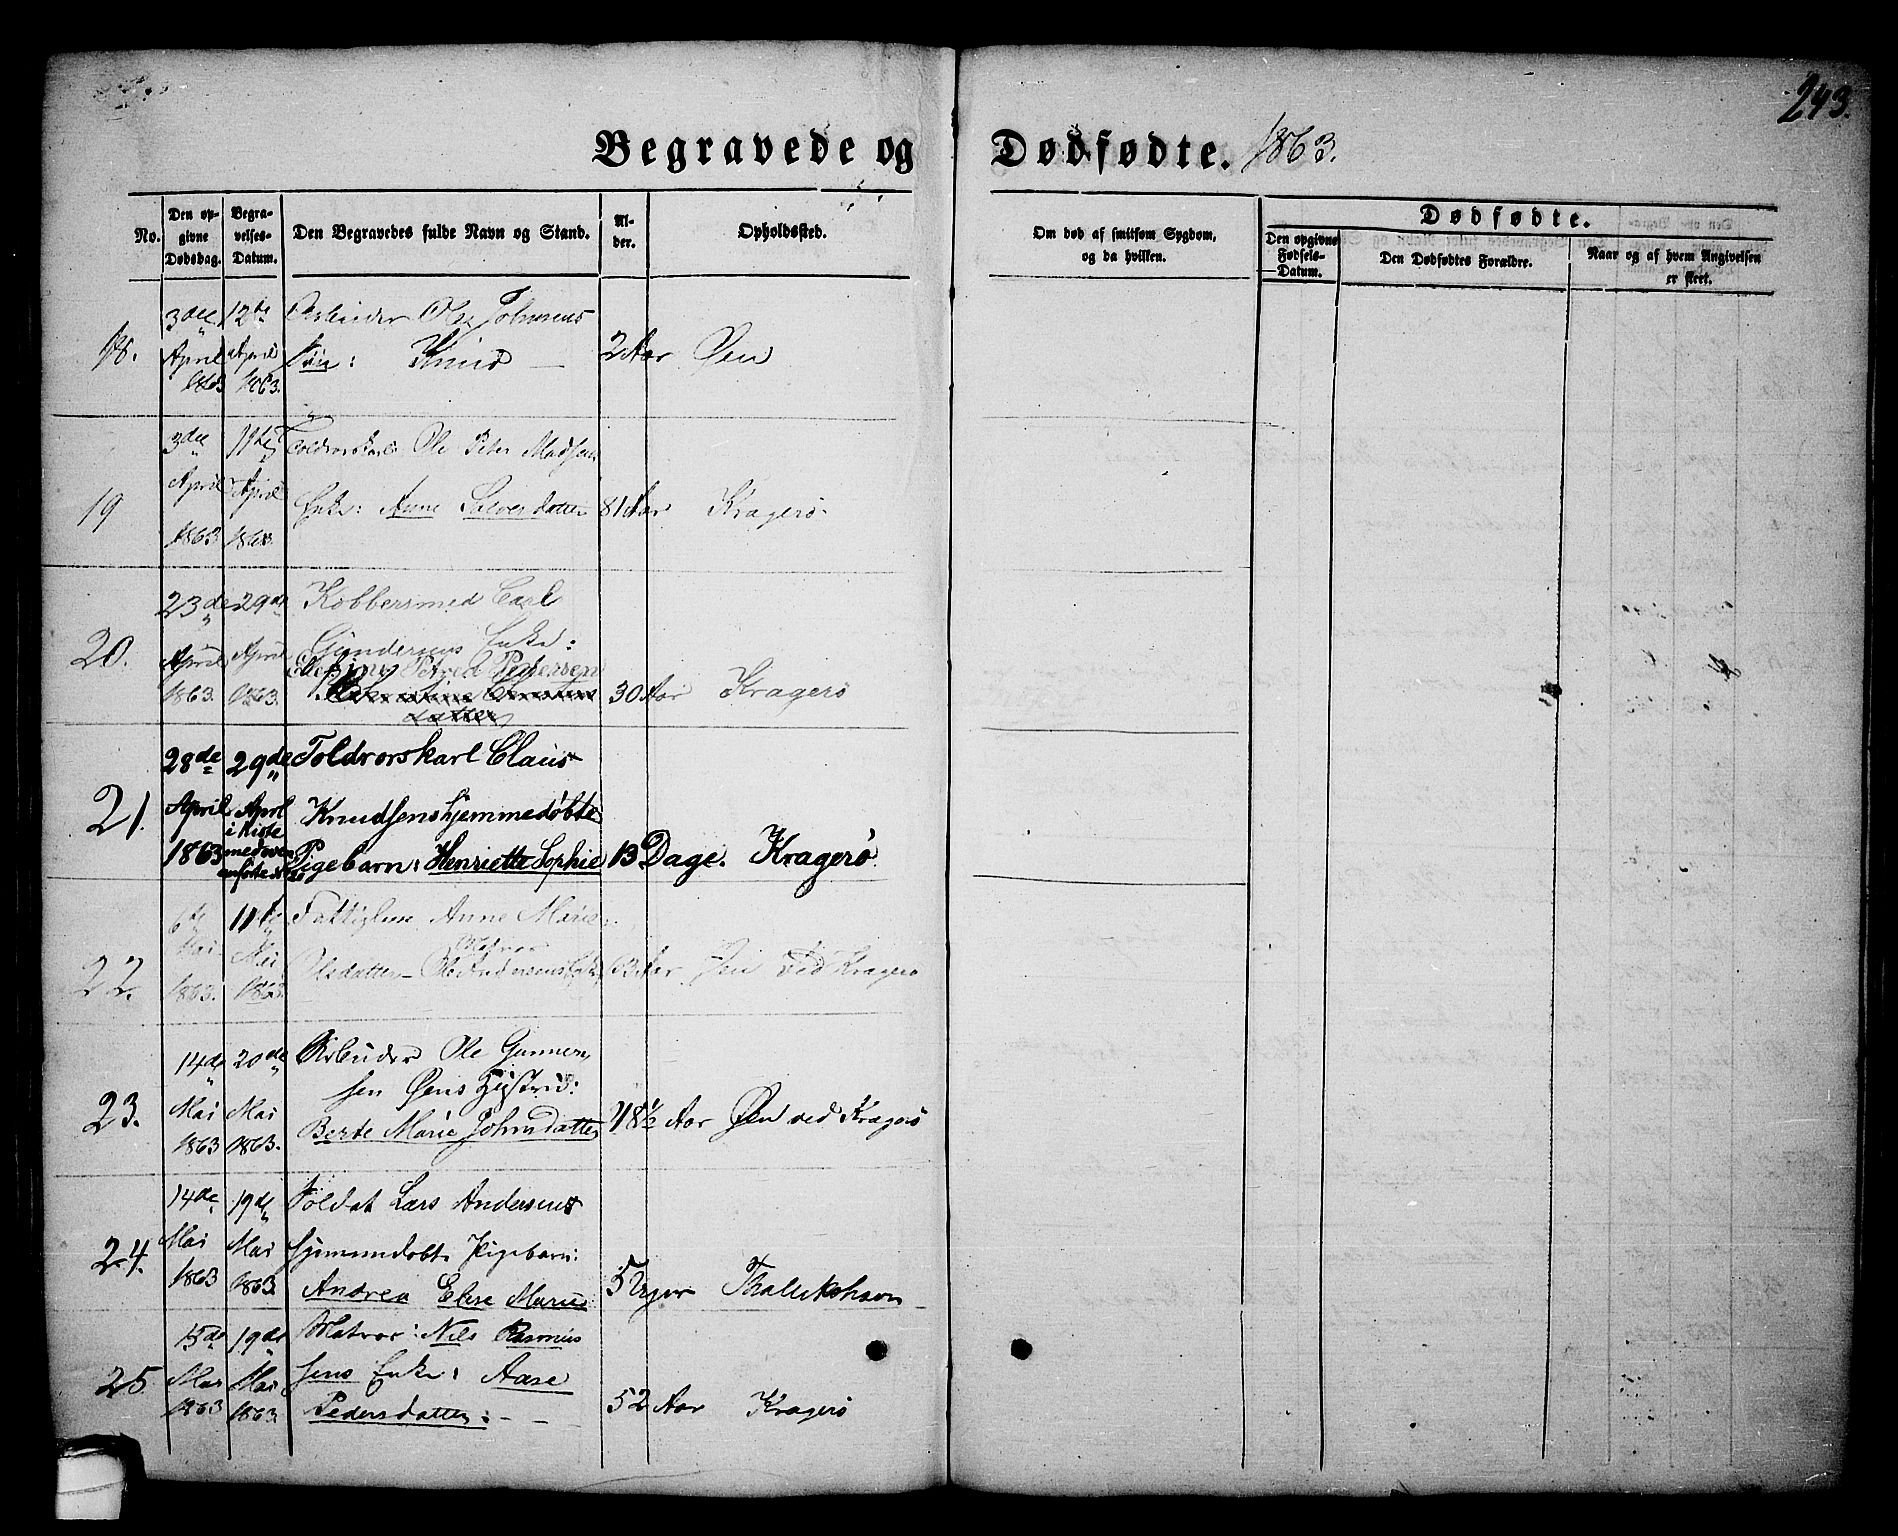 243.
Begravede og Dødfødte. 1863.
No.
Den op-
givne
Dødsdag.
Begra-
velses-
Datum.
Den Begravedes fulde Navn og Stand.
Al-
der.
Opholdssted.
Om død af smitsom Sygdom,
og da hvilken.
Dødfødte.
Den opgivne
Fødsels-
Datum.
Den Dødfødtes Forældre.
Naar og af hvem Angivelsen
er skeet.
3die 12te Arbeider Ole Johnsens
18. April April Søn: Knud — 2 Aar Øen
1863 1863.
3die 11te Toldrorskarl Ole Peter Madsens
19 April April Enke: Anne Halvorsdatter 81 Aar Kragerø
1863 1863.
23de 29de Kobbersmed Carl
20. April April Gundersens Enke:
Petrea Pedersen
1863. 1863. 30 Aar Kragerø
datter
28de 29de Toldrorskarl Claus
21. April April Knudsens hjemmedøbte
i Kiste
1863 med oven Pigebarn: Henriette Sophie 13 Dage. Kragerø
6te 11te Fattiglem Anne Marie
Mai Mai Matros
22. Olsdatter – Ole Andersens Aar Øen ved Kragerø
1863. 1863.
14de 20de Arbeider Ole Gunner
sen Øens Hustru:
23. Mai Mai Berte Marie Johnsdatter 48½ Aar Øen ved Kragerø
1863 1863.
14de 19de Soldat Lars Andersens
24. Mai Mai hjemmedøbte Pigebarn:
1863 1863. Andrea Elise Marie 5 Uger
15de 19de Matros: Nils Rasmus
25 Mai Mai sens Enke: Aase
1863 1863. Pedersdatter: – – 52 Aar Kragerø